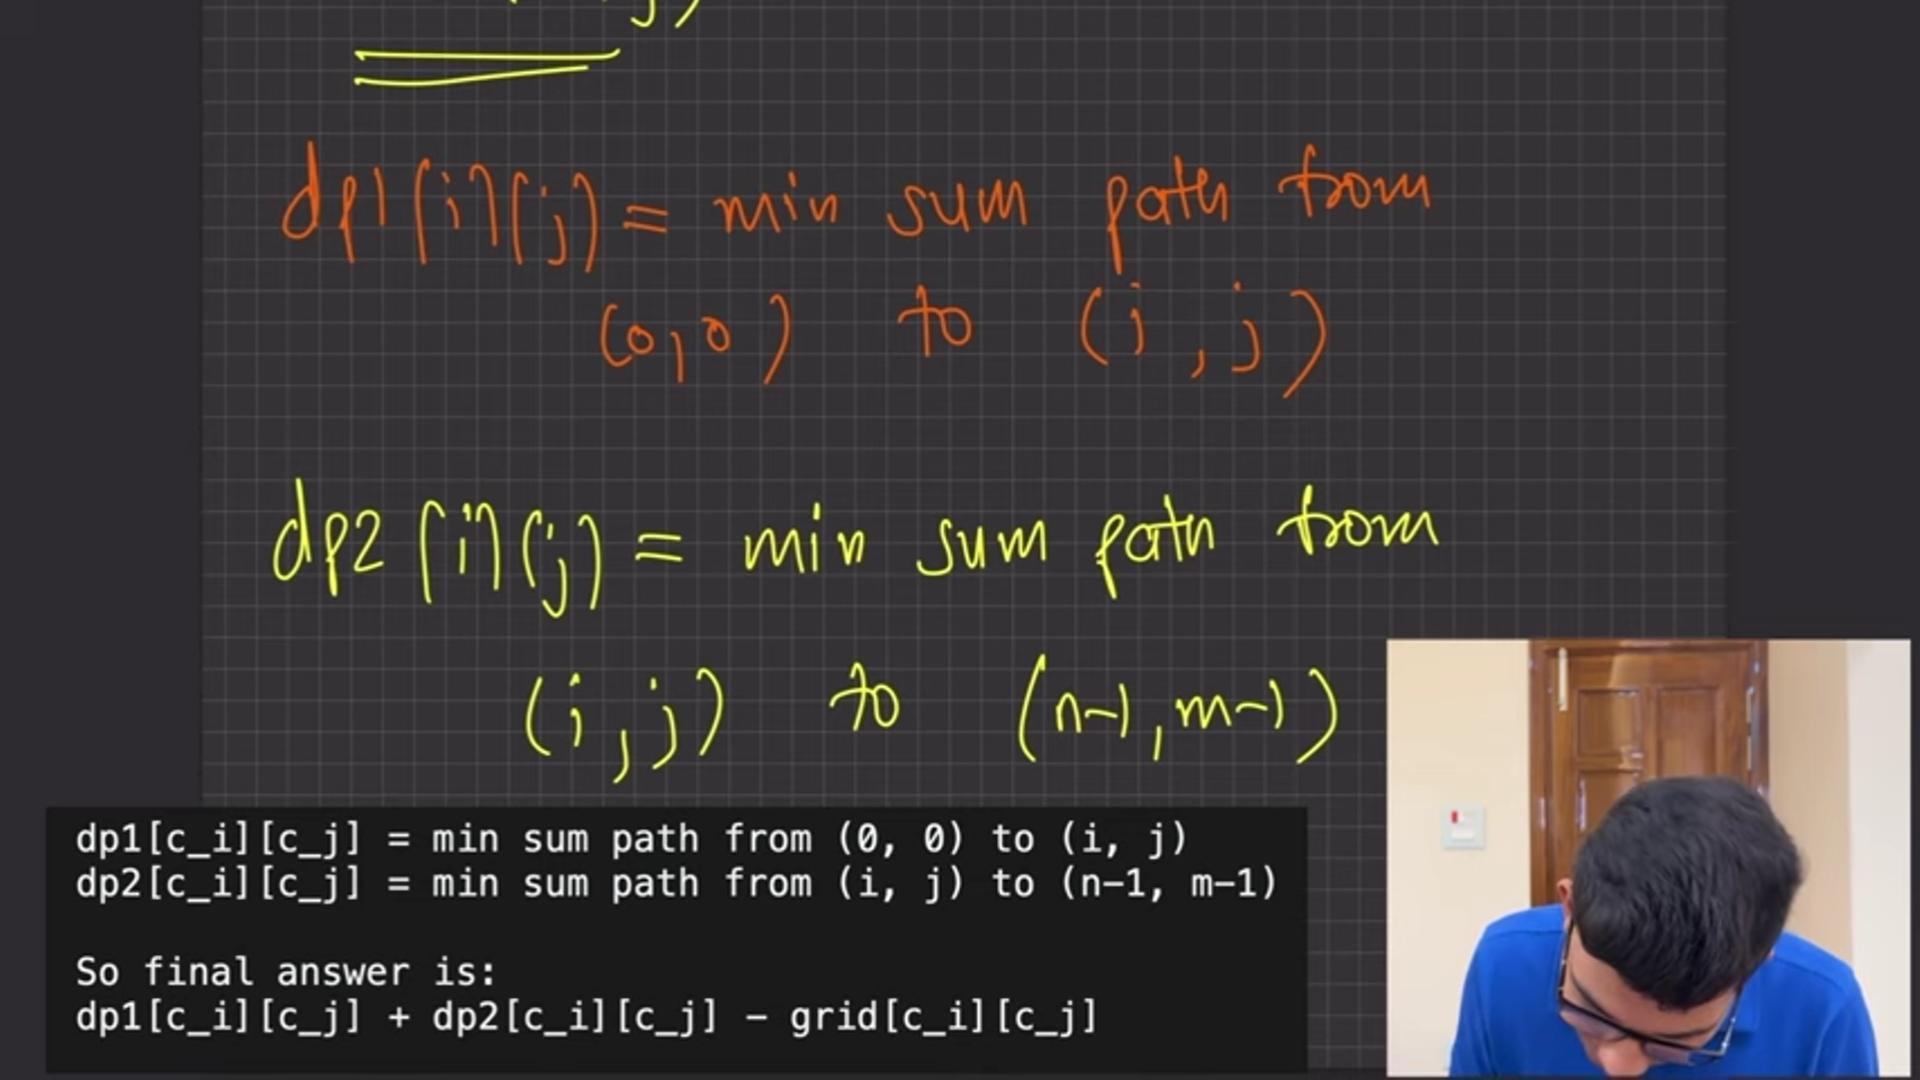 dp1[i][j] = min sum path from
(0,0) to (i,j)
dp2[i][j] = min sum path from
(i,j) to (n-1,m-1)
dp1[c_i][c_j] = min sum path from (0, 0) to (i, j)
dp2[c_i][c_j] = min sum path from (i, j) to (n-1, m-1)
So final answer is:
dp1[c_i][c_j] + dp2[c_i][c_j] - grid[c_i][c_j]